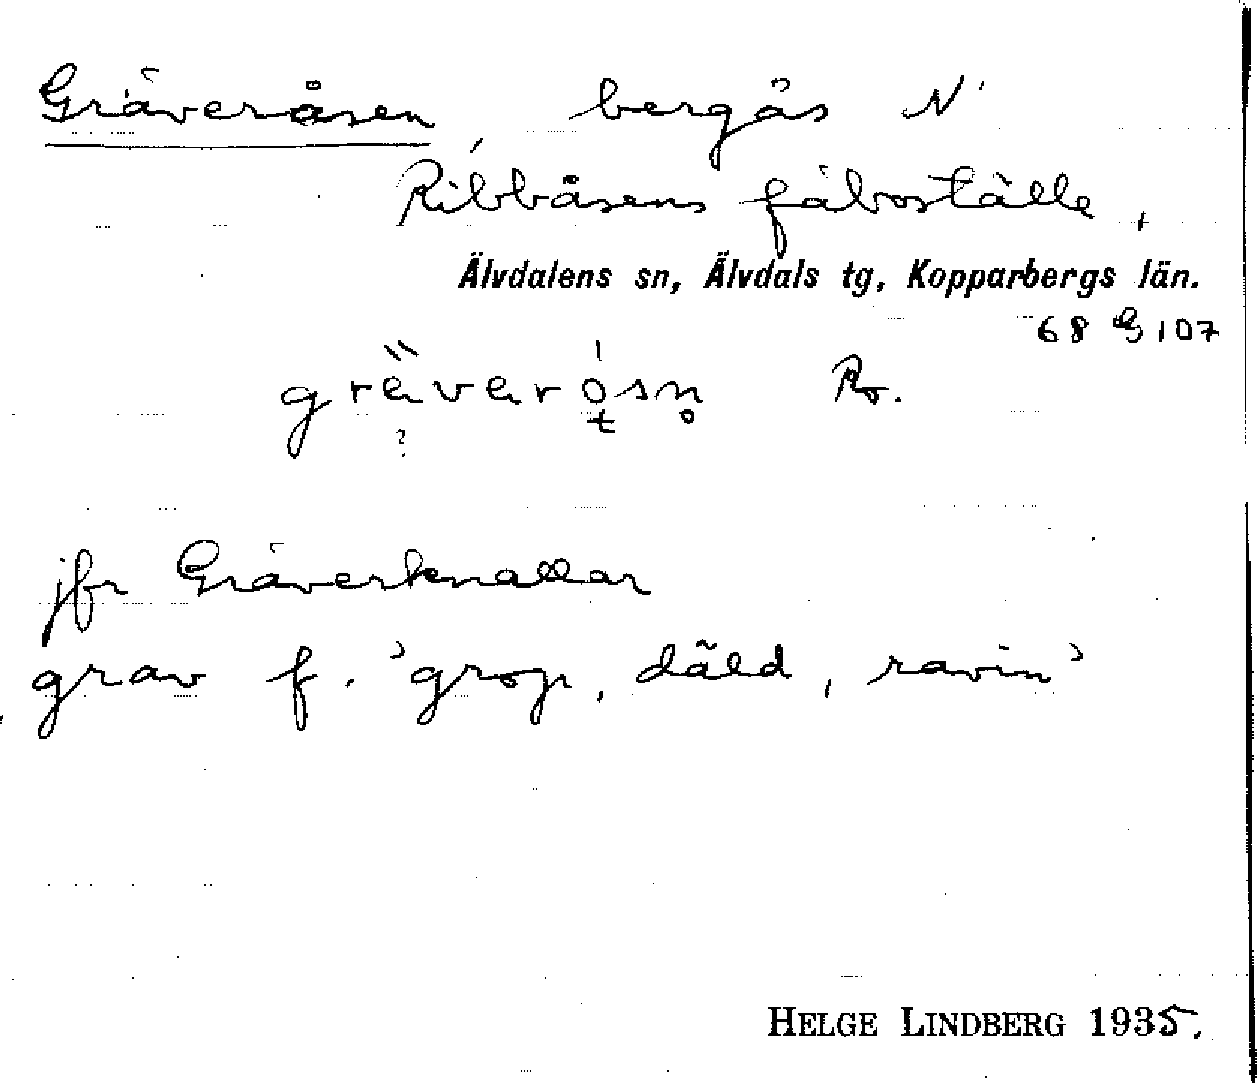 Gräveråsen, bergås N
Ribbåsens fäboställe,
Älvdalens sn, Älvdals tg, Kopparbergs län.
68 G 107
gräverósn Ro.
?
jfr Gräverknallar
grav f. 'grop, däld, ravin'
HELGE LINDBERG 1935.